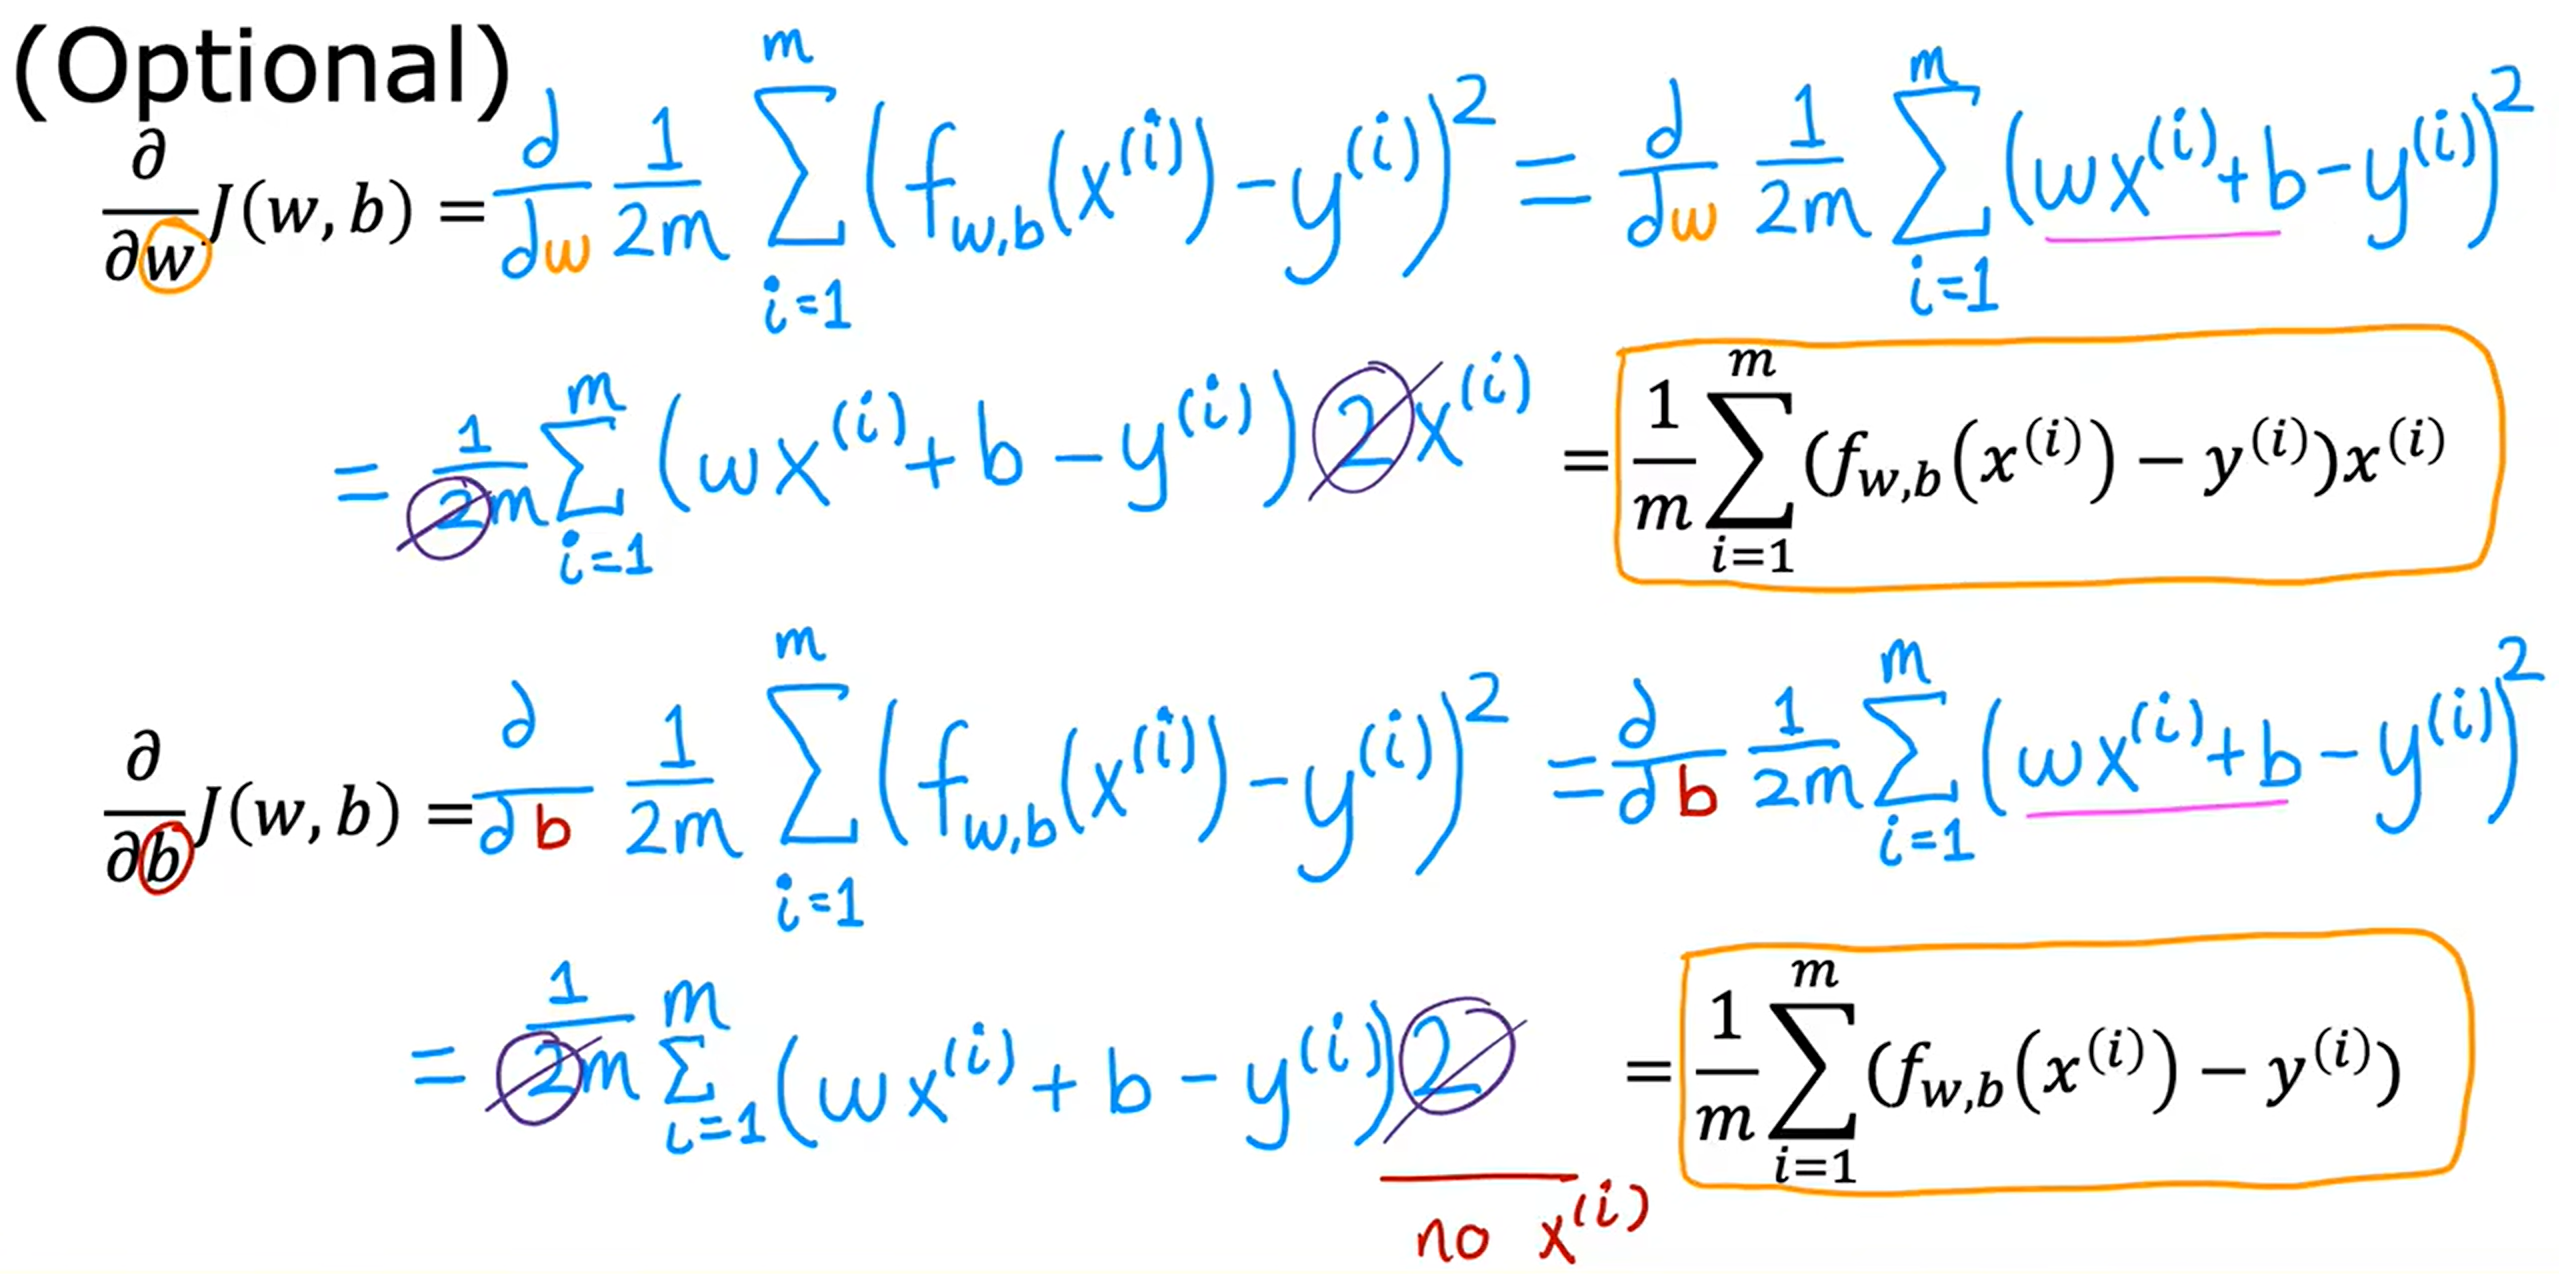 (Optional)
∂/∂w J(w, b) = d/dw 1/2m ∑_{i=1}^{m} (f_{w,b}(x^{(i)}) - y^{(i)})^2 = d/dw 1/2m ∑_{i=1}^{m} (wx^{(i)} + b - y^{(i)})^2
= 1/2m ∑_{i=1}^{m} (wx^{(i)} + b - y^{(i)}) 2x^{(i)} = 1/m ∑_{i=1}^{m} (f_{w,b}(x^{(i)}) − y^{(i)})x^{(i)}
∂/∂b J(w, b) = ∂/∂b 1/2m ∑_{i=1}^{m} (f_{w,b}(x^{(i)}) - y^{(i)})^2 = ∂/∂b 1/2m ∑_{i=1}^{m} (wx^{(i)} + b - y^{(i)})^2
= 1/2m ∑_{i=1}^{m} (wx^{(i)} + b - y^{(i)}) 2 = 1/m ∑_{i=1}^{m} (f_{w,b}(x^{(i)}) − y^{(i)})
no x^{(i)}